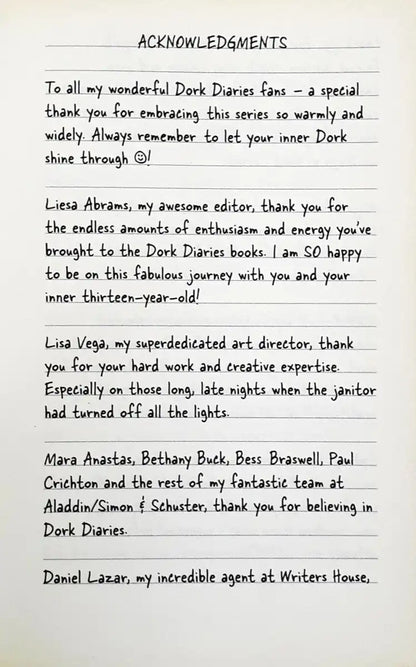 ACKNOWLEDGMENTS
To all my wonderful Dork Diaries fans – a special
thank you for embracing this series so warmly and
widely. Always remember to let your inner Dork
shine through ☺!
Liesa Abrams, my awesome editor, thank you for
the endless amounts of enthusiasm and energy you've
brought to the Dork Diaries books. I am SO happy
to be on this fabulous journey with you and your
inner thirteen-year-old!
Lisa Vega, my superdedicated art director, thank
you for your hard work and creative expertise.
Especially on those long, late nights when the janitor
had turned off all the lights.
Mara Anastas, Bethany Buck, Bess Braswell, Paul
Crichton and the rest of my fantastic team at
Aladdin/Simon & Schuster, thank you for believing in
Dork Diaries.
Daniel Lazar, my incredible agent at Writers House,